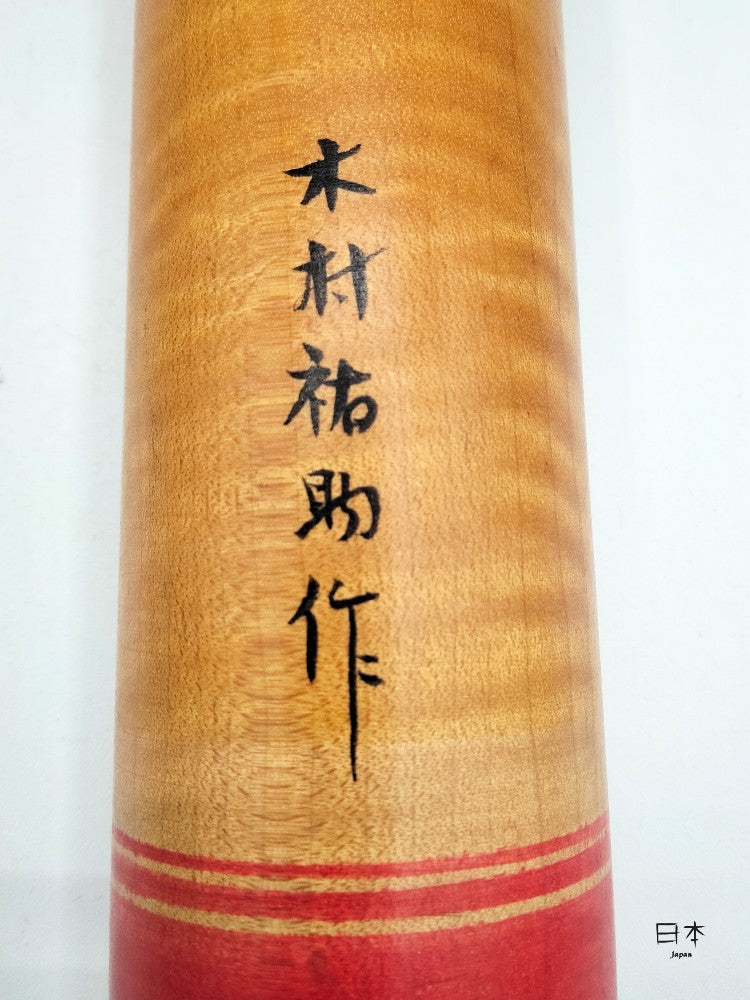 木村祐助作
日本
Japan